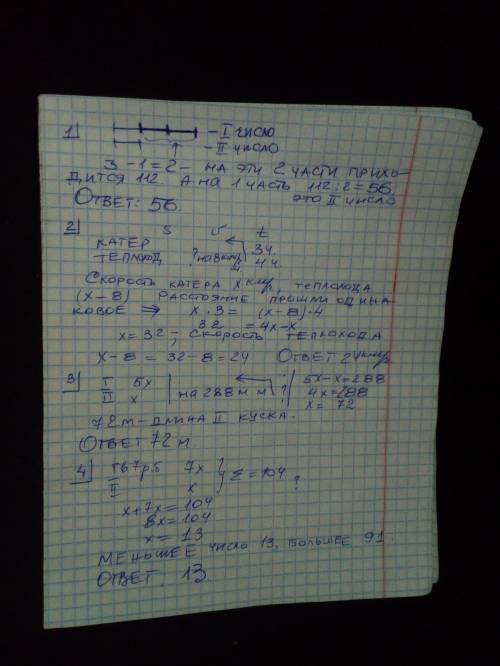 1) - I число
- II число
3 - 1 = 2 - на эти 2 части прихо-
дится 112. А на 1 часть 112 : 2 = 56.
это II число
Ответ: 56.
2) S v t
катер 3ч
теплоход 4ч
Скорость катера x км/ч, теплохода
(x-8) Расстояние прошли одина-
ковое ⇒ x·3 = (x-8)·4
32 = 4x-x
x = 32; скорость теплохода
x-8 = 32-8 = 24 Ответ 24 км/ч
3) I 5x на 288 м ? 5x-x=288
II x 4x=288
x = 72
72м - длина II куска.
Ответ 72 м.
4) I в 7 р.б 7x } Σ = 104
II x ?
x+7x = 104
8x = 104
x = 13
Меньшее число 13, большее 91.
Ответ. 13.